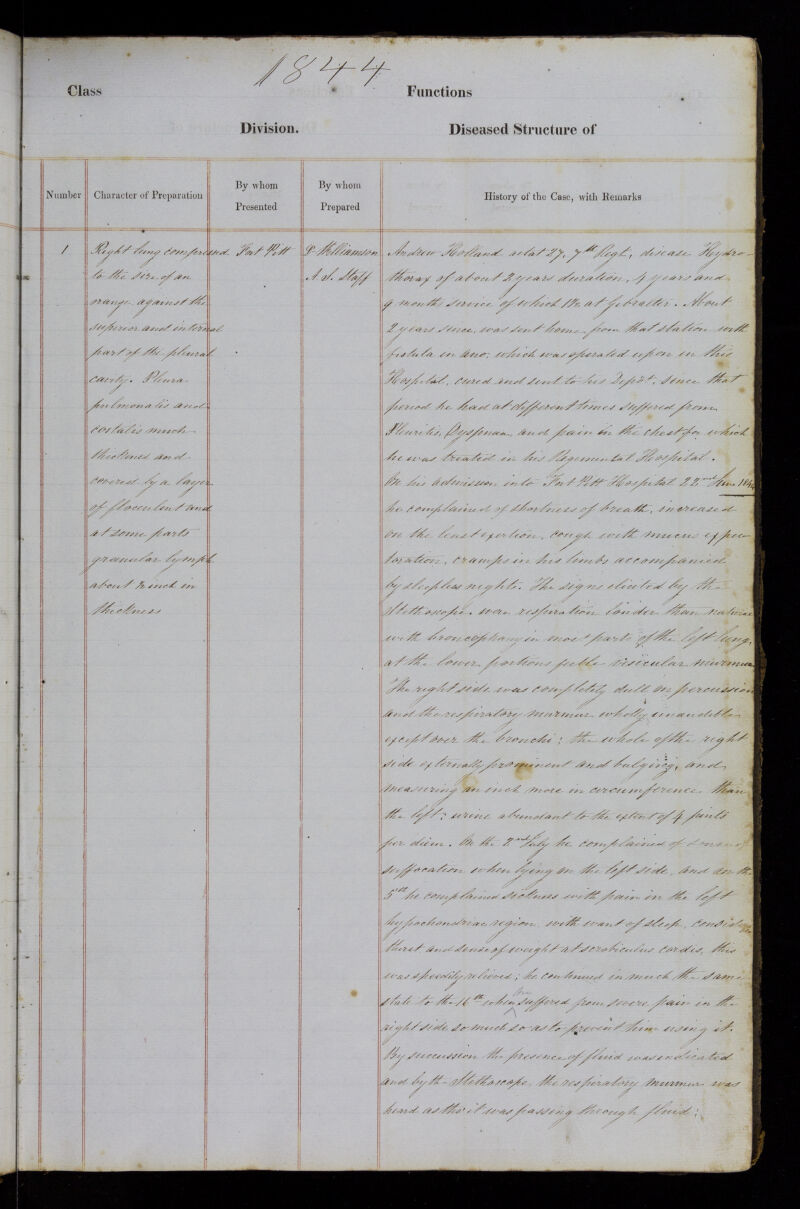 1844
Class Functions
Division. Diseased Structure of
Number
Character of Preparation
By whom
Presented
By whom
Prepared
History of the Case, with Remarks
1
Right lung compressed
to the size of an
orange against the
superior and internal
part of the pleural
cavity. Pleura
pulmonalis and
costalis much
thickened and
covered by a layer
of flocculent and
at some parts
granular lymph
about ½ inch in
thickness
Fort Pitt
P Williamson
A. S. Staff
Andrew Holland aetat 27, 7th Regt, disease Hydro-
thorax of about 2 years duration, 4 years and
9 months service of which at Gibralter. About
2 years since, was sent home from that station with
fistula in ano, which was operated upon in this
Hospital, cured and sent to his Depôt, since that
period he had at different times suffered from
Pleuritis, Dyspnœa and pain in the chest for which
he was treated in his Regimental Hospital.
On his admission into Fort Pitt Hospital 22nd June 1844
he complained of shortness of breath, increased
on the least exertion, cough with mucus expec
toration, cramps in his limbs accompanied
by sleepless nights. The signs elicited by the
Stethoscope were respiration louder than natural
with broncophony in most parts of the left lung,
at the lower portions feeble vesicular murmur
The right side was completely dull on percussion
and the respiratory murmur wholly inaudible
except over the bronchi; the whole of the right
side externally prominent and bulging, and
measuring an inch more in circumference than
the left; urine abundant to the extent of 4 pints
per diem. On the 2nd July he complained of sense of
suffocation when lying on the left side, and on the
5th he complained sickness with pain in the left
hypochondriac region with want of sleep, considerable
thirst and sense of weight at scrobiculus cordis, this
was speedily relieved; he continued in much the same
state to the 16th when he suffered from severe pain in the
right side so much so as to prevent him using it.
By succussion the presence of fluid was indicated
and by the Stethoscope, the respiratory murmur was
heard as tho' it was passing through fluid: